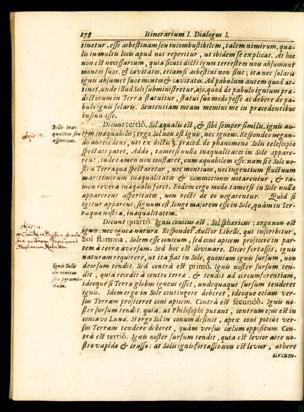 178 Itinerarium I. Dialogus I.
tinetur, esse asbestinam seu incombustibilem, talem nimirum, qua-
lis in multis locis apud nos reperitur, ut ibidem se explicat. At hoc
non est necessarium, quia sicuti dicti ignes terrestres non absumunt
montes suos, & cavitates, etiamsi asbestini non sint; ita nec solaris
ignis absumet suos montes, & cavitates. Ad pabulum autem quod at-
tinet, unde illud Soli subministretur,
dictorum in Terra statuitur, statui suo modo posse ac debere de pa-
bulo ignis solaris. Sententiam meam
in sinu asse.
Dicunt tertiò. Sol aequalis est, & sibi semper similis, ignis au-
tem inaequabilis; ergo Sol non est ignis, nec igneus. Respondeo negan-
do antecedens, ut ex dictis de phaenomenis Solis telescopio
spectati patet. Addo, tametsi nulla inaequalitas in Sole appare-
parent, inde tamen non constaret, eum aequabilem esse; nam si è Sole no-
stra Terraqua spectaretur, nec montium, nec ingentium fluctuum
maritimorum inaequalitates & commotiones notarentur, & ta-
men revera inaequalis foret. Eodem ergo modo tametsi in Sole nulla
apparerent asperitates, non recte de eo negarentur. Quod si
igitur apparent, signum est longe majores esse in Sole, quam in Ter-
raqua nostra, inaequalitates.
Dicunt quartò. Ignis conicus est, Sol sphaericus; ergo non est
ignis, nec ignea natura. Respondet Auctor Libelli, qui inscribitur,
Sol flamma, Solem esse conicum, sed coni apicem projicere in par-
tem à terra aversam. Sed hoc est divinare. Dices fortassis, ignis
naturam requirere, ut ita fiat in Sole, quoniam ignis sursum, non
deorsum tendit. Sed contrà est primò. Ignis noster sursum ten-
dit, quia recedit à centro terrae, & tendit ad circumferentiam,
ideoque si Terra globus igneus esset, undequaque sursum tenderet
ignis. Idem ergo in Sole contingere deberet, ideoque etiam ver-
sus Terram projiceret coni apicem. Contrà est secundò. Ignis no-
ster sursum tendit, quia, ut Philosophi putant, centrum ejus est in
concavo Lunae. Si ergo Sol in conum desinit, apex coni potius ver-
sus Terram tendere deberet, quàm versus caelum oppositum. Con-
trà est tertiò. Ignis noster sursum tendit, quia est levior aëre no-
stro vapido & crasso: at Solis ignis fortassis non est levior, aethere
circum-
Solis inae-
qualitas in
asseritur.
Ignis Solis
an conicus
sit pyrami-
dalis.